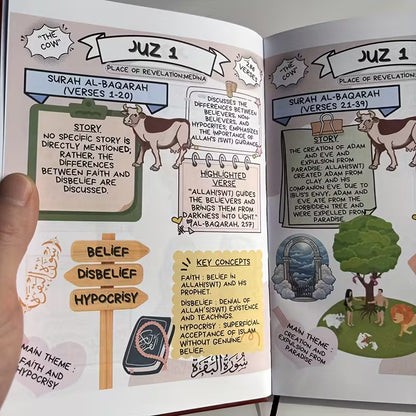 "THE
COW"
JUZ 1
PLACE OF REVELATION:MEDINA
286
VERSES
SURAH AL-BAQARAH
(VERSES 1-20)
STORY
NO SPECIFIC STORY IS
DIRECTLY MENTIONED.
RATHER, THE
DIFFERENCES
BETWEEN FAITH AND
DISBELIEF ARE
DISCUSSED.
DISCUSSES THE
DIFFERENCES BETWEEN
BELIEVERS, NON-
BELIEVERS, AND
HYPOCRITES; EMPHASIZES
THE IMPORTANCE OF
ALLAH'S(SWT) GUIDANCE.
HIGHLIGHTED
VERSE
"ALLAH(SWT) GUIDES
THE BELIEVERS AND
BRINGS THEM FROM
DARKNESS INTO LIGHT."
(AL-BAQARAH, 257)
BELIEF
DISBELIEF
HYPOCRISY
KEY CONCEPTS
FAITH : BELIEF IN
ALLAH(SWT) AND HIS
PROPHET.
DISBELIEF : DENIAL OF
ALLAH'S(SWT) EXISTENCE
AND TEACHINGS.
HYPOCRISY : SUPERFICIAL
ACCEPTANCE OF ISLAM
WITHOUT GENUINE
BELIEF.
سورة البقرة
MAIN THEME :
FAITH AND
HYPOCRISY
"THE
COW"
JUZ 1
PLACE OF REVELATION:
SURAH AL-BAQARAH
(VERSES 21-39)
STORY
THE CREATION OF ADAM
AND EVE AND
EXPULSION FROM
PARADISE. ALLAH(SWT)
CREATED ADAM FROM
CLAY AND HIS
COMPANION EVE. DUE TO
IBLIS'S ENVY, ADAM AND
EVE ATE FROM THE
FORBIDDEN TREE AND
WERE EXPELLED FROM
PARADISE.
MAIN THEME :
CREATION AND
EXPULSION FROM
PARADISE